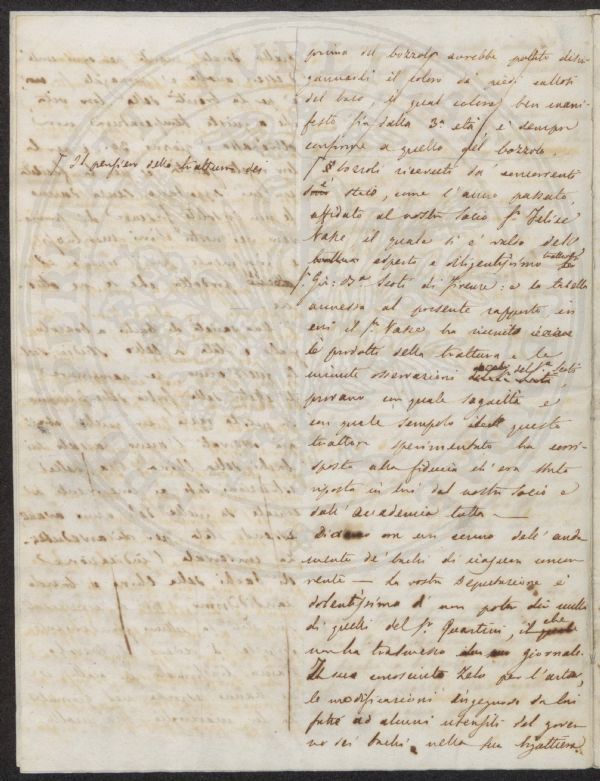 prima del bozzolo avrebbe potuto disin-
gannarsi il colore da' piedi callosi
del baco, il qual colore, ben mani-
festo fin dalla 3ª età, è sempre
conforme a quello del bozzolo.
Γ Il pensiero della trattura dei
Γ bozzoli ricevuti da' concorrenti
è stato, come l'anno passato,
affidato al nostro Socio Sr. Felice
Vasse, il quale si è valso dell'
esperto e diligentissimo trattore
Sr. Gio: Sesti di Firenze: e la tabella
annessa al presente rapporto, in
cui il Sr. Vasse ha riunito
le prodotti della trattura e le
minute osservazioni del Sr. Sesti
provano con quale sagacità e
con quale scrupolo questo
trattore sperimentato ha corri-
sposto alla fiducia ch'era stata
riposta in lui dal nostro Socio e
dall'Accademia tutta —
Diamo ora un cenno dell'anda-
mento de' bachi di ciascun concor-
rente — La vostra Deputazione è
dolentissima di non poter dir nulla
di quelli del Sr. Quartini, che
non ha trasmesso giornale.
Il suo conosciuto zelo per l'arte,
le modificazioni ingegnose da lui
fatte ad alcuni utensili del gover-
no dei bachi, nella sua bigattiera